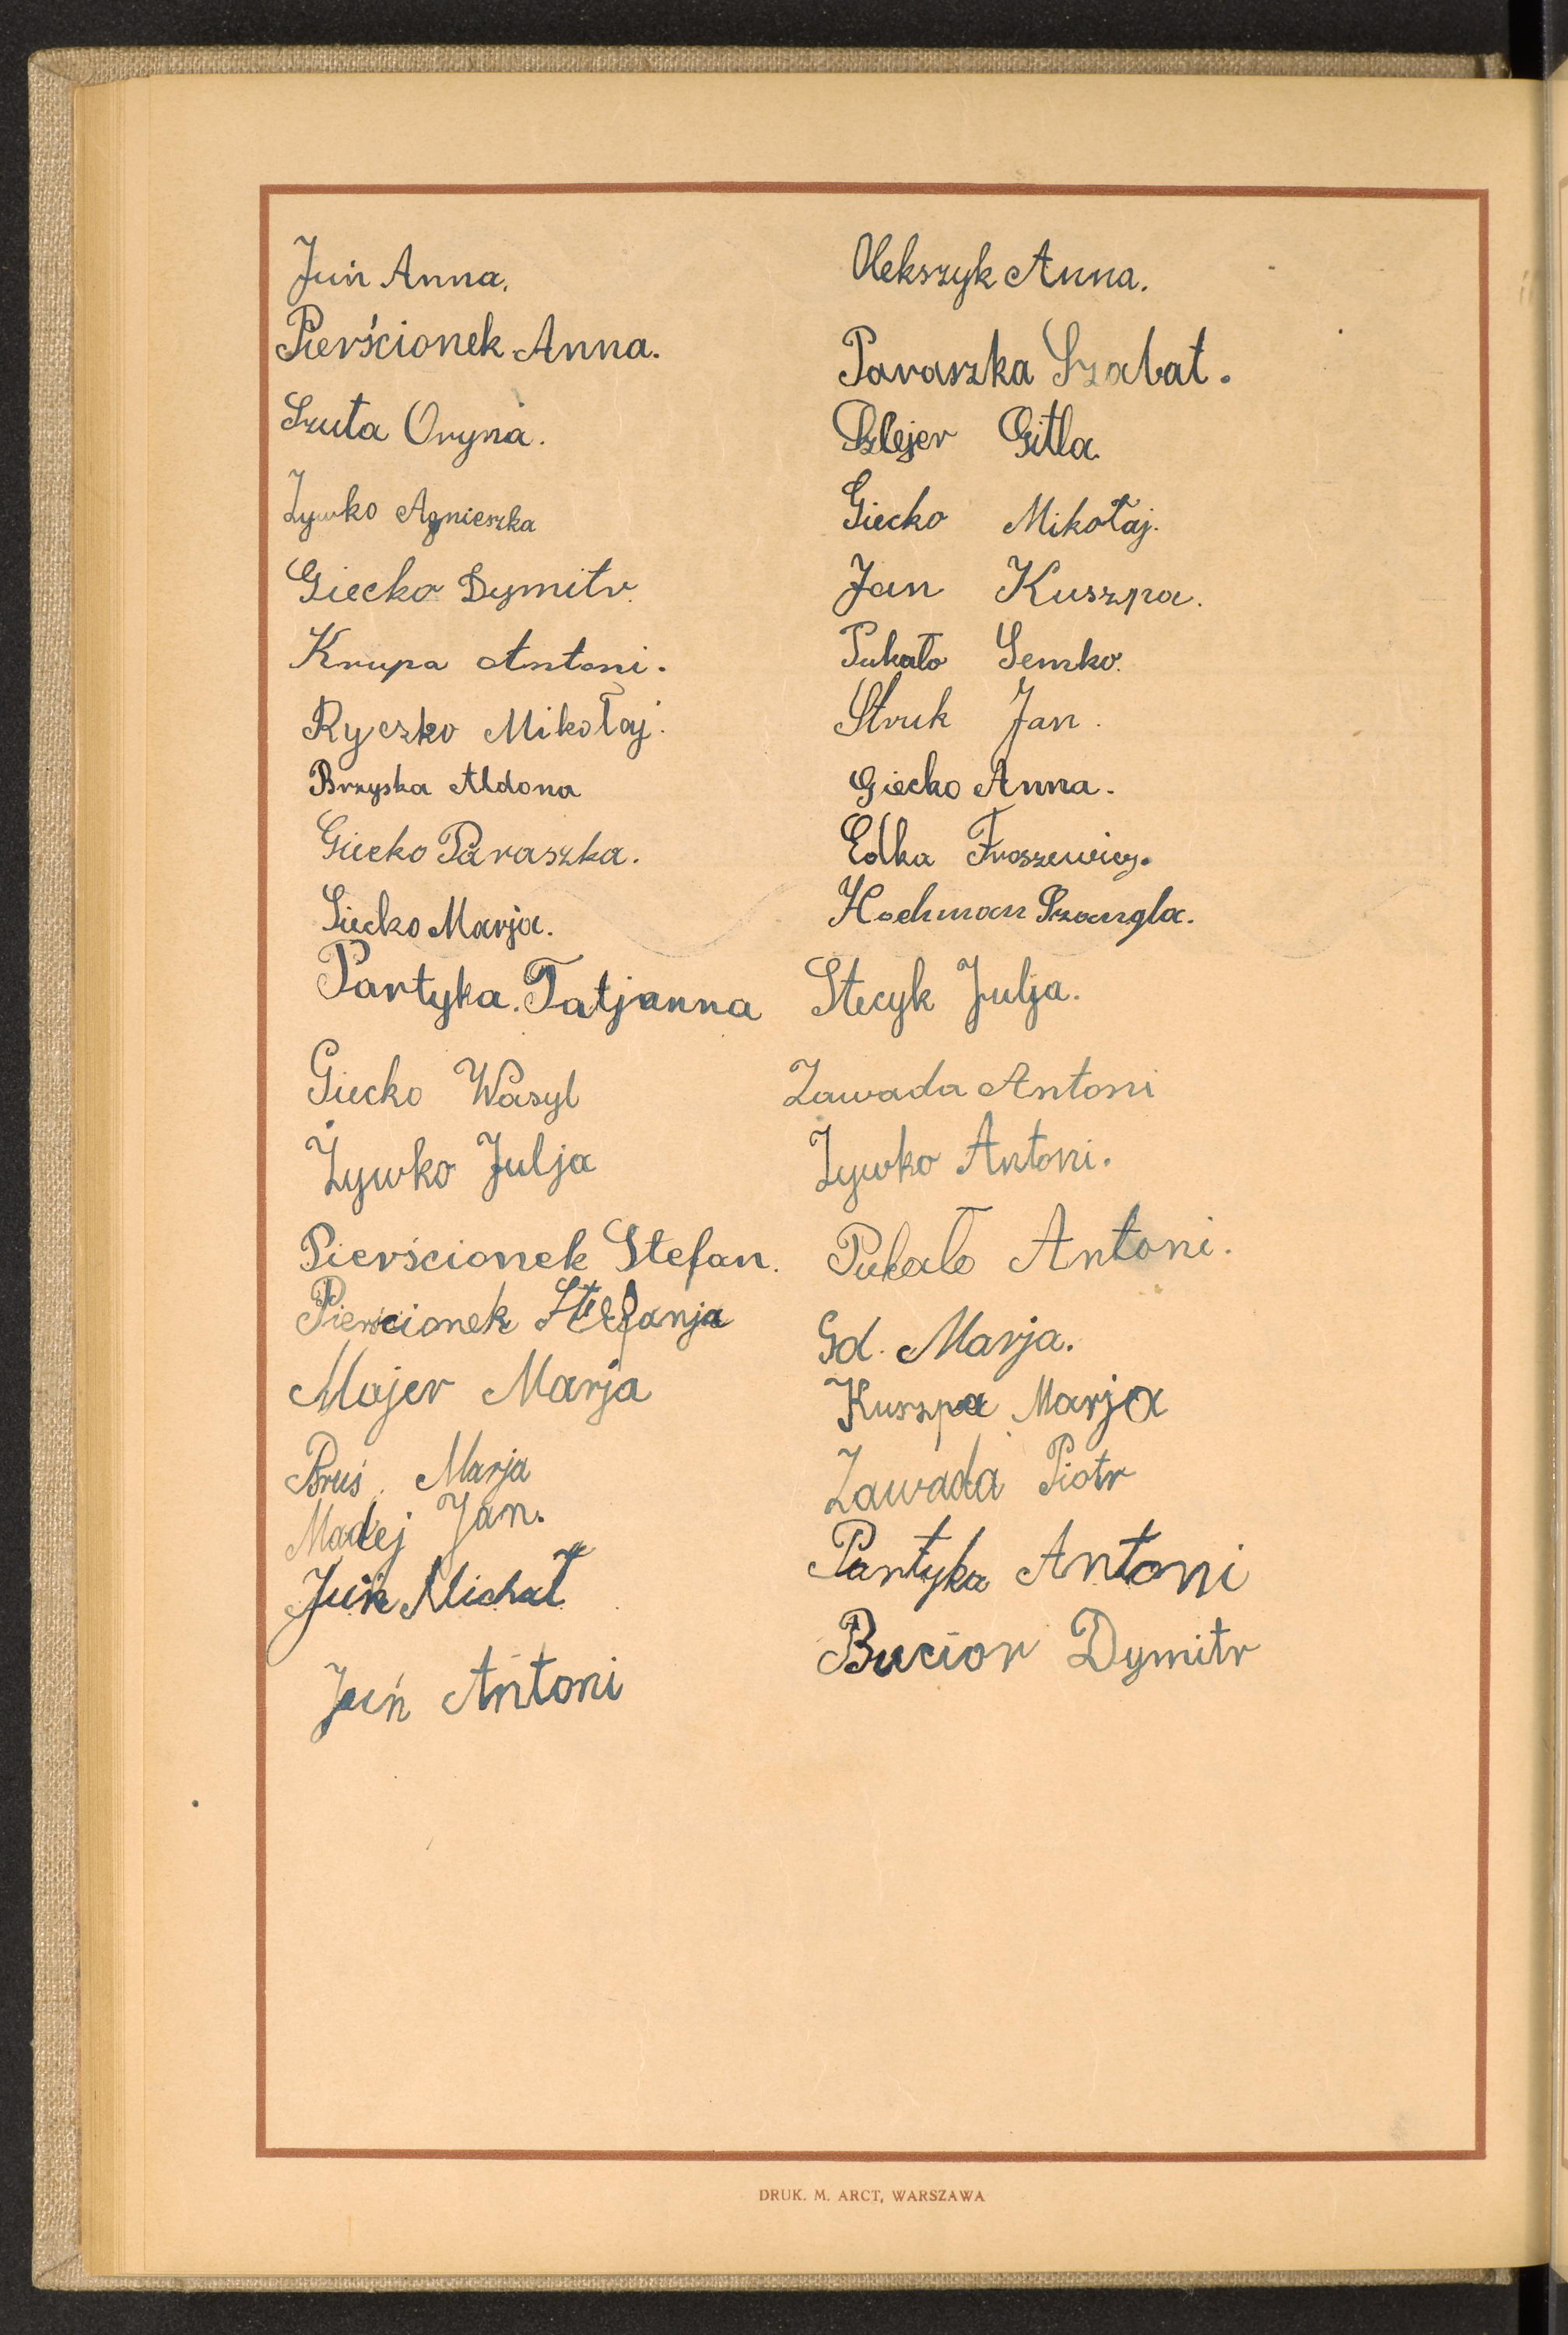 Juń Anna.
Pierścionek Anna.
Szuta Oryna.
Żywko Agnieszka
Giecko Dymitr.
Krupa Antoni.
Ryczko Mikołaj.
Brzyska Aldona
Giecko Paraszka.
Giecko Marja.
Partyka. Tatjanna
Giecko Wasyl
Żywko Julja
Pierścionek Stefan.
Pierścionek Stefanja
Majer Marja
Bruś Marja
Madej Jan.
Juń Michał
Juń Antoni
Olekszyk Anna.
Paraszka Szabat.
Szlejer Gitla.
Giecko Mikołaj.
Jan Kuszpa.
Pukało Semko.
Struk Jan.
Giecko Anna.
Edka
Hochman
Stecyk Julja.
Zawada Antoni
Żywko Antoni.
Pukało Antoni.
Gd. Marja.
Kuszpa Marja
Zawada Piotr
Partyka Antoni
Bucior Dymitr
DRUK. M. ARCT, WARSZAWA